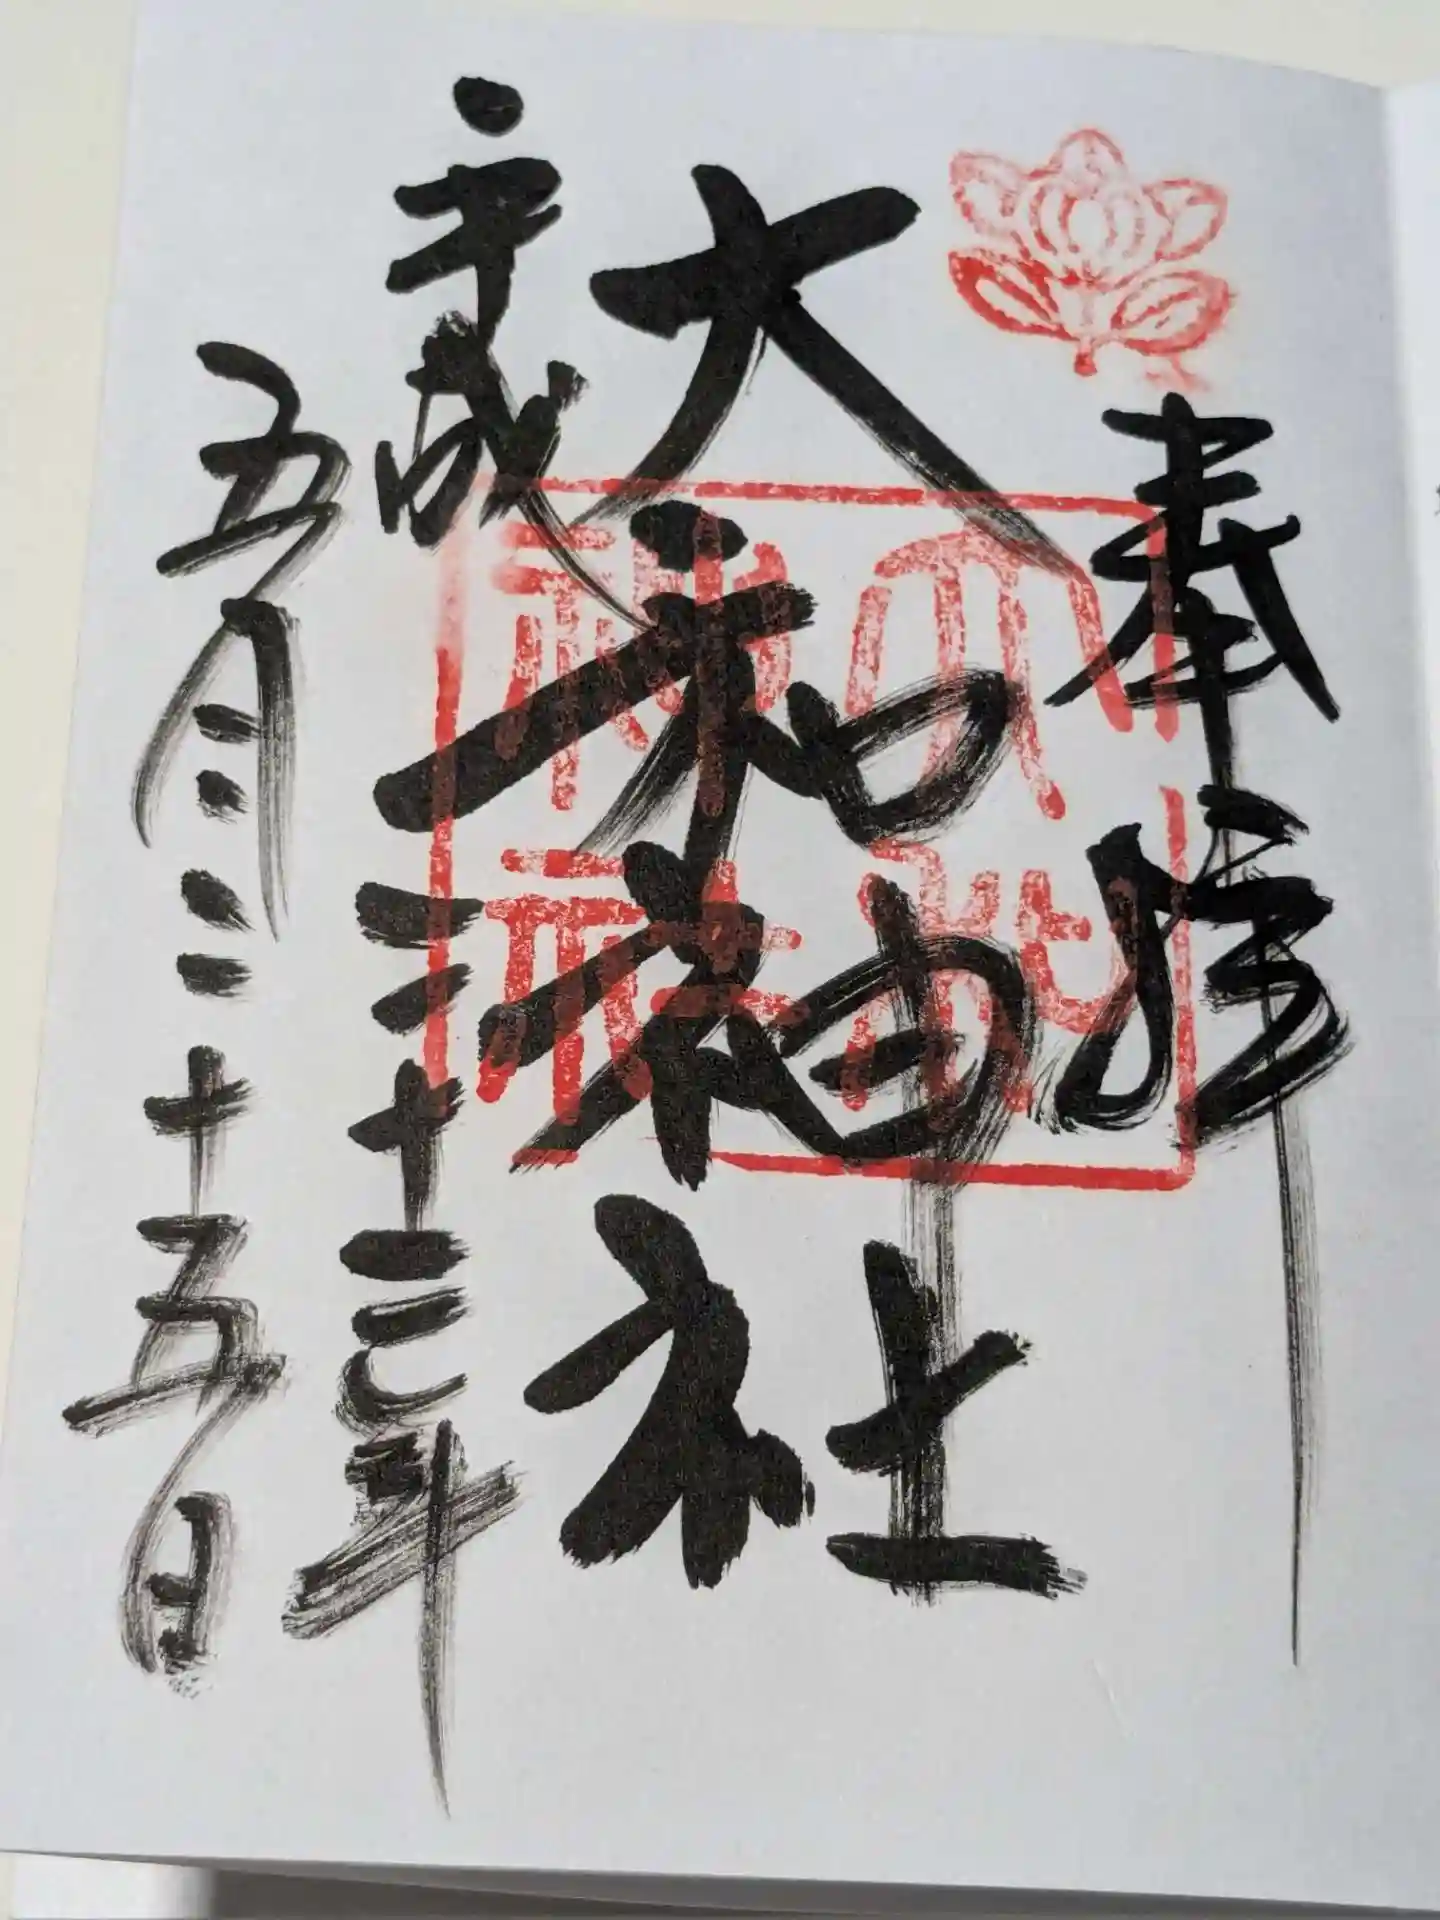 奉拝
大和神社
平成二十三年
五月二十五日
大和
神社